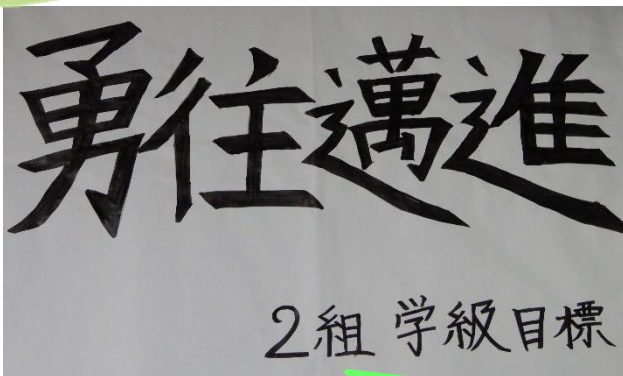 勇往邁進
2組 学級目標